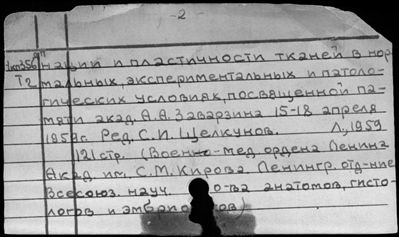 -2-
нации и пластичности тканей в нор
мальных, экспериментальных и патоло-
Т2
гических условиях, посвященной па-
мяти акад. А.А. Заварзина 15-18 апреля
1959г. Ред. С.И. Щелкунов. Л., 1959
121 стр. (Военно-мед. ордена Ленина
Акад им. С.М. Кирова. Ленингр. отд-ние
Всесоюз. науч. о-ва анатомов, гисто-
логов и эмбрио ов)